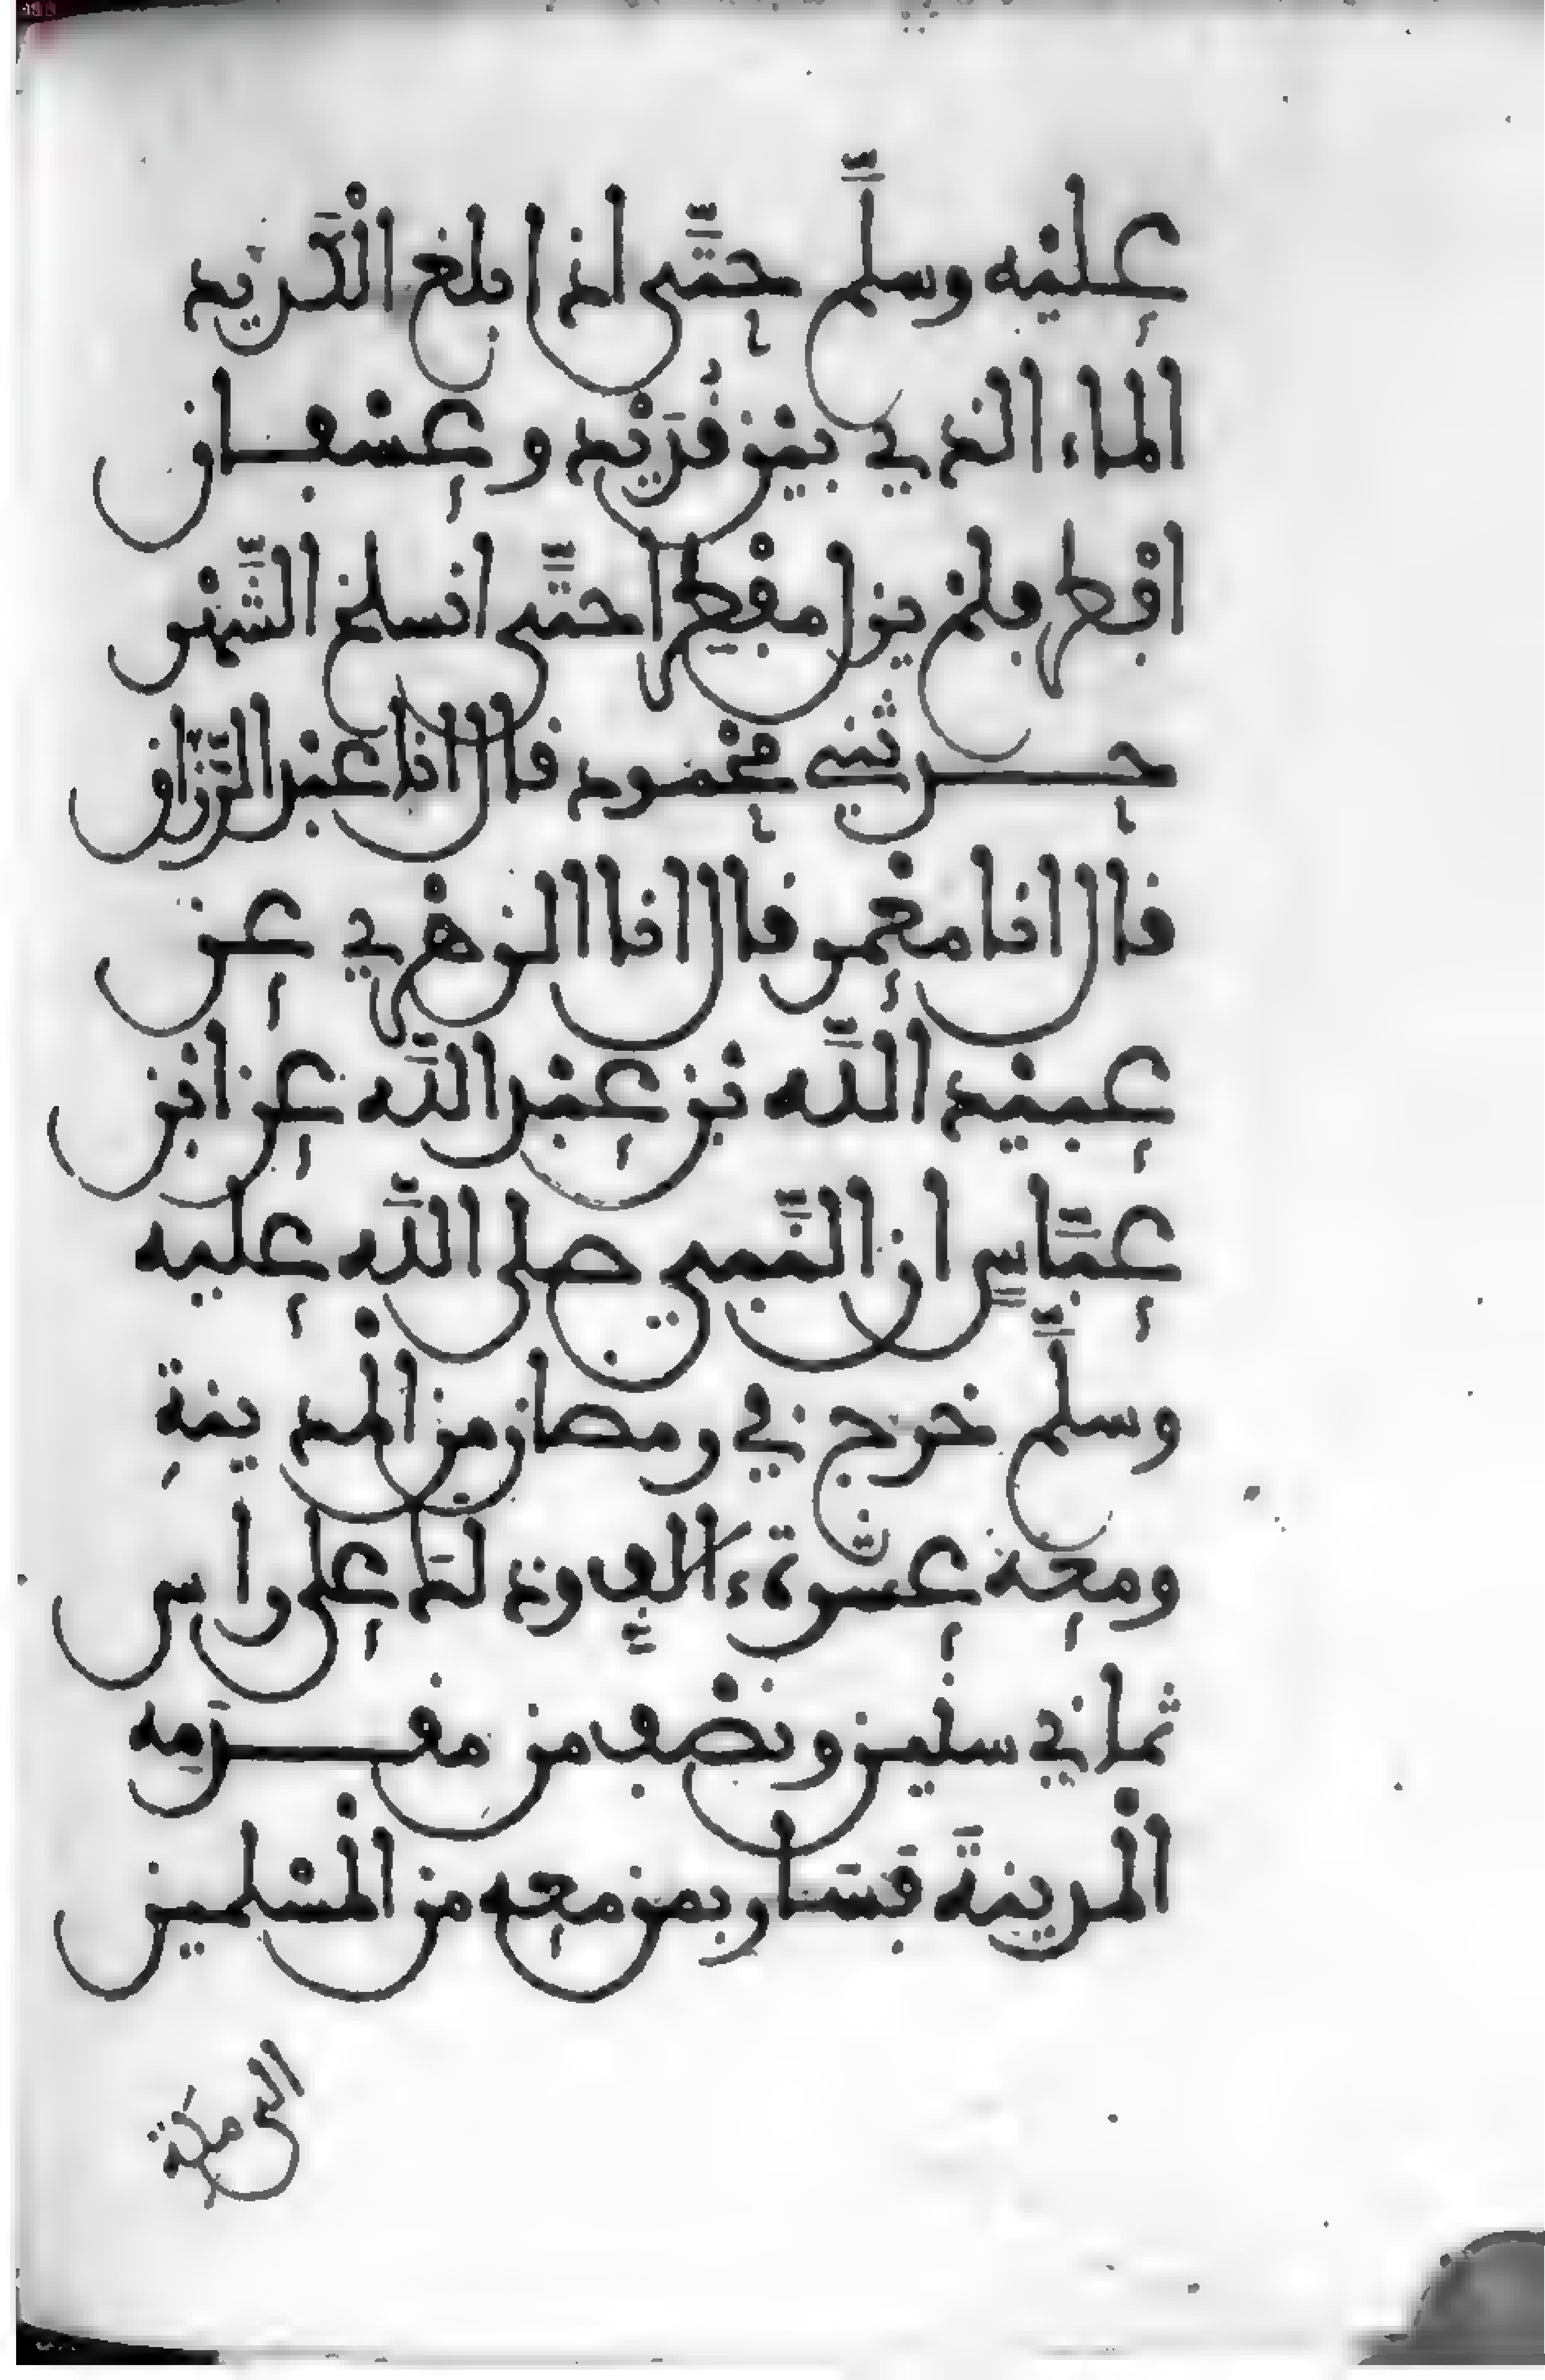 عليه وسلم حتى اذا بلغ الكديد
الماء الذي بين قديد وعسفان
افطر فلم يزل مفطرا حتى انسلخ الشهر
حدثني محمود قال انا عبد الرزاق
قال انا معمر قال انا الزهري عن
عبيد الله بن عبد الله عن ابن
عباس ان النبي صلى الله عليه
وسلم خرج في رمضان من المدينة
ومعه عشرة ءالاف وذلك على راس
ثماني سنين ونصف من مقدمه
المدينة فسار بمن معه من المسلمين
الى مكة